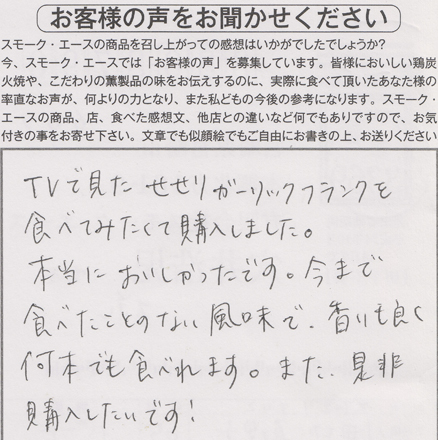 お客様の声をお聞かせください
スモーク・エースの商品を召し上がっての感想はいかがでしたでしょうか?
今、スモーク・エースでは「お客様の声」を募集しています。皆様においしい鶏炭
火焼や、こだわりの薫製品の味をお伝えするのに、実際に食べて頂いたあなた様の
率直なお声が、何よりの力となり、また私どもの今後の参考になります。スモーク・
エースの商品、店、食べた感想文、他店との違いなど何でもありですので、お気
付きの事をお寄せ下さい。文章でも似顔絵でもご自由にお書きの上、お送りください
TVで見た せせりガーリックフランクを
食べてみたくて購入しました。
本当においしかったです。今まで
食べたことのない風味で、香りも良く
何本でも食べれます。また、是非
購入したいです!